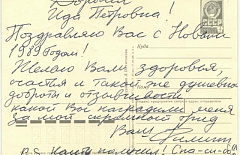 Дорогая
Ида Петровна!
Поздравляю Вас с Новым
1989 годом!
Куда
Желаю Вам здоровья,
счастья и такой же душевной
доброты и отзывчивости
какой Вас наградили меня
за мой скромный труд
Ваш
P.S. Капт помощи! Спа-си-бо